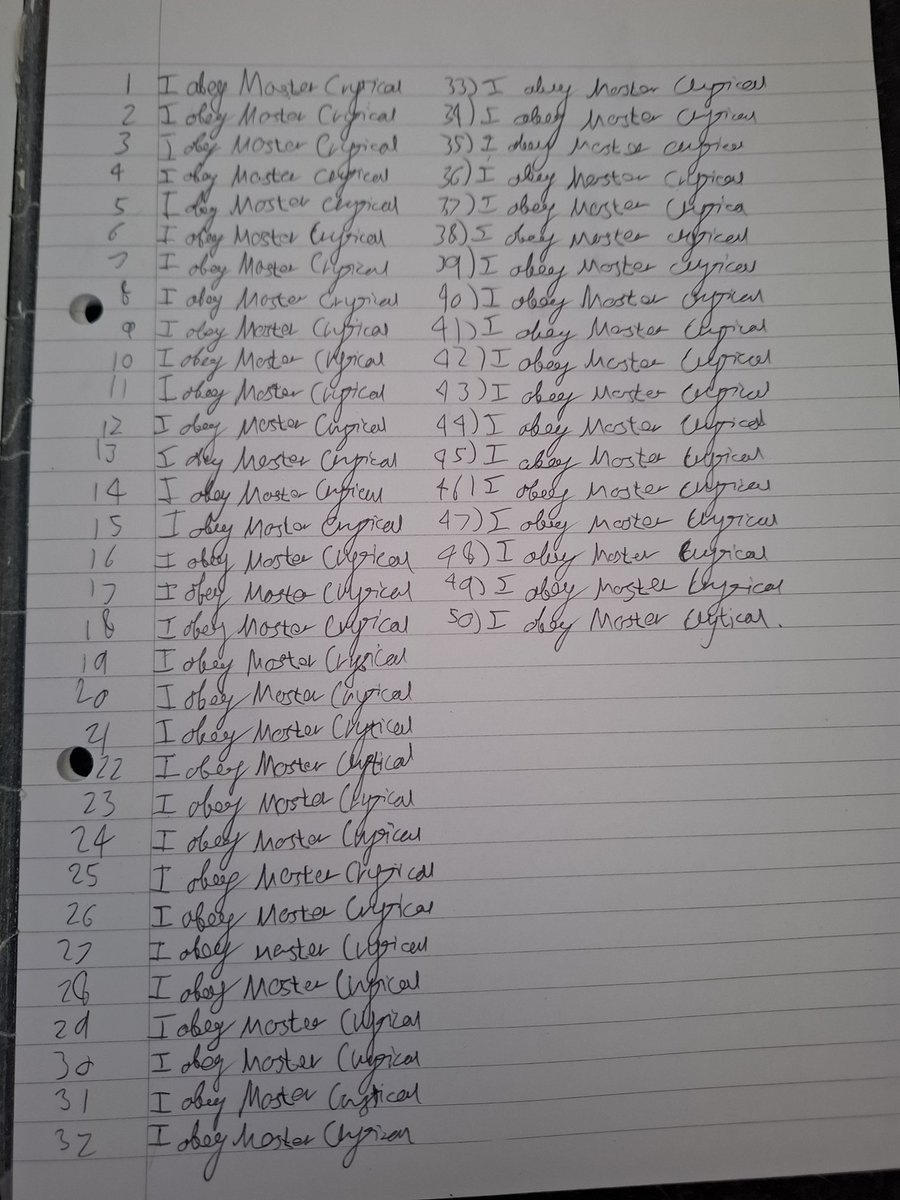 1 I obey Master Cryptical
2 I obey Master Cryptical
3 I obey Master Cryptical
4 I obey Master Cryptical
5 I obey Master Cryptical
6 I obey Master Cryptical
7 I obey Master Cryptical
8 I obey Master Cryptical
9 I obey Master Cryptical
10 I obey Master Cryptical
11 I obey Master Cryptical
12 I obey Master Cryptical
13 I obey Master Cryptical
14 I obey Master Cryptical
15 I obey Master Cryptical
16 I obey Master Cryptical
17 I obey Master Cryptical
18 I obey Master Cryptical
19 I obey Master Cryptical
20 I obey Master Cryptical
21 I obey Master Cryptical
22 I obey Master Cryptical
23 I obey Master Cryptical
24 I obey Master Cryptical
25 I obey Master Cryptical
26 I obey Master Cryptical
27 I obey Master Cryptical
28 I obey Master Cryptical
29 I obey Master Cryptical
30 I obey Master Cryptical
31 I obey Master Cryptical
32 I obey Master Cryptical
33) I obey Master Cryptical
34) I obey Master Cryptical
35) I obey Master Cryptical
36) I obey Master Cryptical
37) I obey Master Cryptica
38) I obey Master Cryptical
39) I obey Master Cryptical
40) I obey Master Cryptical
41) I obey Master Cryptical
42) I obey Master Cryptical
43) I obey Master Cryptical
44) I obey Master Cryptical
45) I obey Master Cryptical
46) I obey Master Cryptical
47) I obey Master Cryptical
48) I obey Master Cryptical
49) I obey Master Cryptical
50) I obey Master Cryptical.